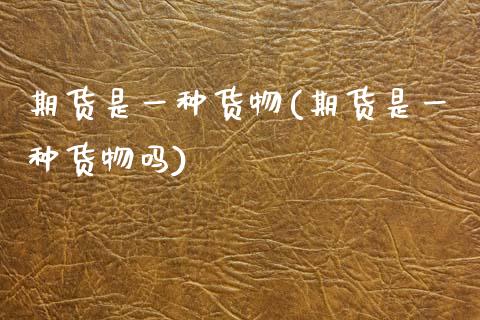 期货是一种货物(期货是一
种货物吗)